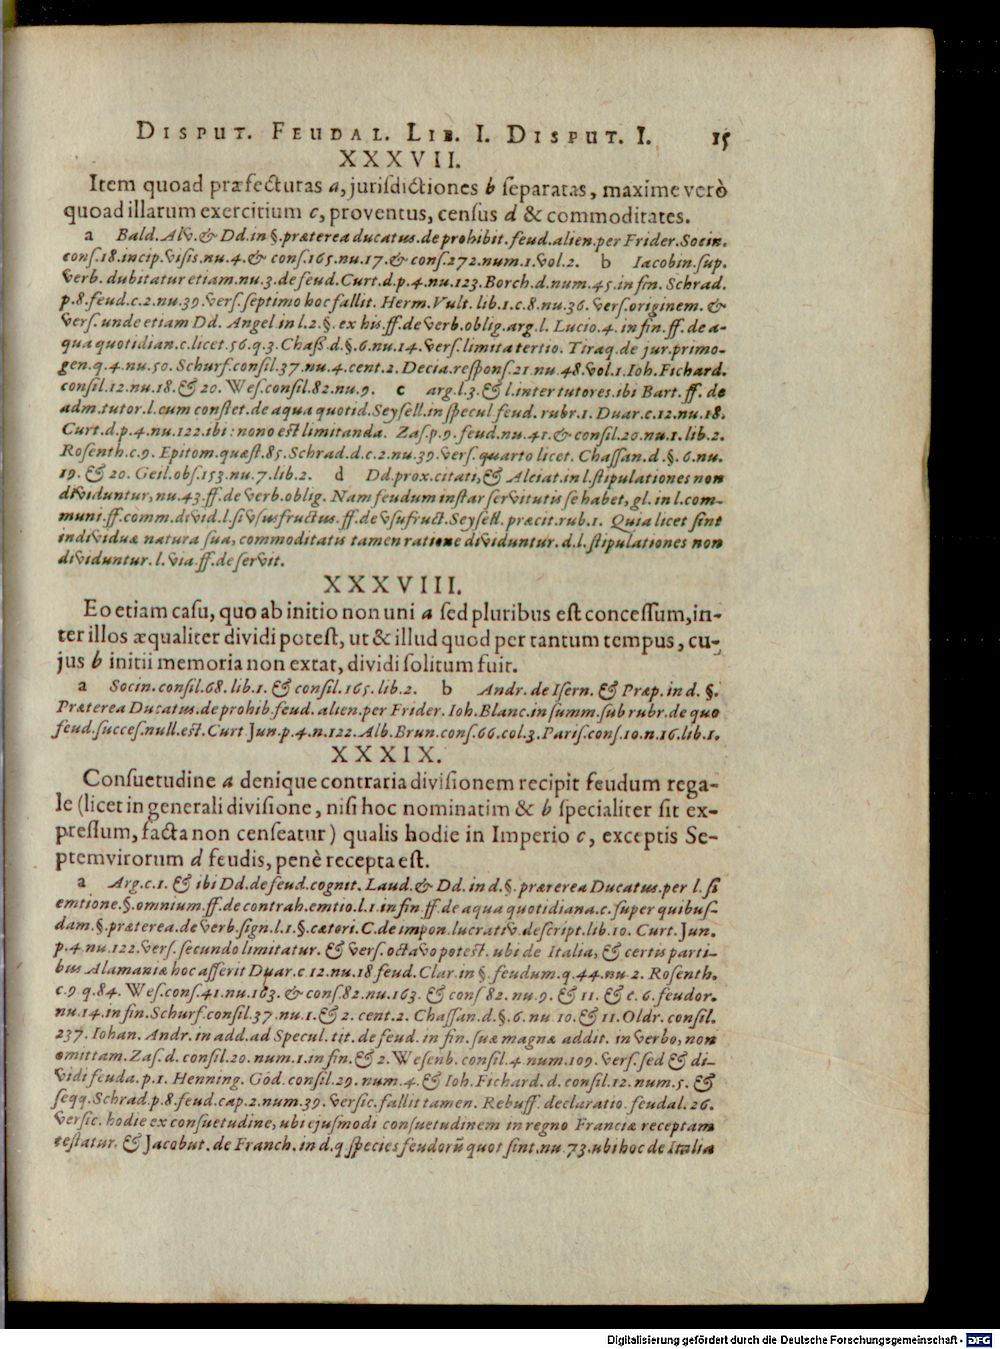 DISPUT. FEUDAL. LIB. I. DISPUT. I. 15
XXXVII.
Item quoad præfecturas a, jurisdictiones b separatas, maxime verò
quoad illarum exercitium c, proventus, census d & commoditates.
a Bald. Alv. & Dd. in §. præterea ducatus. de prohibit. feud. alien. per Frider. Socin.
cons. 18. incip. visis. nu. 4. & cons. 165. nu. 17. & cons. 272. num. 1. vol. 2. b Iacobin. sup.
verb. dubitatur etiam. nu. 3. de feud. Curt. d. p. 4. nu. 123. Borch. d. num. 45. in fin. Schrad.
p. 8. feud. c. 2. nu. 39. vers. septimo hoc fallit. Herm. Vult. lib. 1. c. 8. nu. 36. vers. originem. &
vers. unde etiam Dd. Angel in l. 2. §. ex his. ff. de verb. oblig. arg. l. Lucio. 4. in fin. ff. de a-
qua quotidian. c. licet. 56. q. 3. Chaß. d. §. 6. nu. 14. vers. limita tertio. Tiraq. de jur. primo-
gen. q. 4. nu. 50. Schurf. consil. 37. nu. 4. cent. 2. Decia. respons. 21. nu. 48. vol. 1. Ioh. Fichard.
consil. 12. nu. 18. & 20. Wes. consil. 82. nu. 9. c arg. l. 3. & l. inter tutores. ibi Bart. ff. de
adm. tutor. l. cum constet. de aqua quotid. Seysell. in specul feud. rubr. 1. Duar. c. 12. nu. 18.
Curt. d. p. 4. nu. 122. ibi: nono est limitanda. Zas. p. 9. feud. nu. 41. & consil. 20. nu. 1. lib. 2.
Rosenth. c. 9. Epitom. quæst. 85. Schrad. d. c. 2. nu. 39. vers. quarto licet. Chassan. d. §. 6. nu.
19. & 20. Geil. obs. 153. nu. 7. lib. 2. d Dd. prox. citati, & Alciat. in l. stipulationes non
dividuntur, nu. 43. ff. de verb. oblig. Nam feudum instar servitutis se habet, gl. in l. com-
muni. ff. comm. divid. l. si vsusfructus. ff. de vsufruct. Seysell. præcit. rub. 1. Quia licet sint
individuæ natura sua, commoditatis tamen ratione dividuntur. d. l. stipulationes non
dividuntur. l. via. ff. de servit.
XXXVIII.
Eo etiam casu, quo ab initio non uni a sed pluribus est concessum, in-
ter illos æqualiter dividi potest, ut & illud quod per tantum tempus, cu-
jus b initii memoria non extat, dividi solitum fuit.
a Socin. consil. 68. lib. 1. & consil. 165. lib. 2. b Andr. de Isern. & Præp. in d. §.
Præterea Ducatus. de prohib. feud. alien. per Frider. Ioh. Blanc. in summ. sub rubr. de quo
feud. succes. null. est. Curt Jun. p. 4. n. 122. Alb. Brun. cons. 66. col. 3. Paris. cons. 10. n. 16. lib. 1.
XXXIX.
Consuetudine a denique contraria divisionem recipit feudum rega-
le (licet in generali divisione, nisi hoc nominatim & b specialiter sit ex-
pressum, facta non censeatur) qualis hodie in Imperio c, exceptis Se-
ptemvirorum d feudis, penè recepta est.
a Arg. c. 1. & ibi Dd. de feud. cognit. Laud. & Dd. in d. §. prærerea Ducatus. per l. si
emtione. §. omnium. ff. de contrah. emtio. l. 1. in fin. ff. de aqua quotidiana. c. super quibus-
dam. §. præterea. de verb. sign. l. 1. §. cæteri. C. de impon. lucrativ. descript. lib. 10. Curt. Jun.
p. 4. nu. 122. vers. secundo limitatur. & vers. octavo potest. ubi de Italia, & certis parti-
bus Alamaniæ hoc asserit Duar. c. 12. nu. 18. feud. Clar. in §. feudum. q. 44. nu. 2. Rosenth.
c. 9. q. 84. Wes. cons. 41. nu. 163. & cons. 82. nu. 163. & cons 82. nu. 9. & 11. & c. 6. feudor.
nu. 14. in fin. Schurf. consil. 37. nu. 1. & 2. cent. 2. Chassan. d. §. 6. nu. 10. & 11. Oldr. consil.
237. Iohan. Andr. in add. ad Specul. tit. de feud. in fin. suæ magnæ addit. in verbo, non
omittam. Zas. d. consil. 20. num. 1. in fin. & 2. Wesenb. consil. 4. num. 109. vers. sed & di-
vidi feuda. p. 1. Henning. God. consil. 29. num. 4. & Ioh. Fichard. d. consil. 12. num. 5. &
seqq. Schrad. p. 8. feud. cap. 2. num. 39. versic. fallit tamen. Rebuff. declaratio. feudal. 26.
versic. hodie ex consuetudine, ubi ejusmodi consuetudinem in regno Franciæ receptam
testatur. & Jacobut. de Franch. in d. q species feudorū quot sint. nu. 73. ubi hoc de Italia
Digitalisierung gefördert durch die Deutsche Forschungsgemeinschaft - DFG